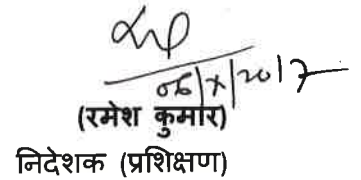 06/X/2017
(रमेश कुमार)
निदेशक (प्रशिक्षण)